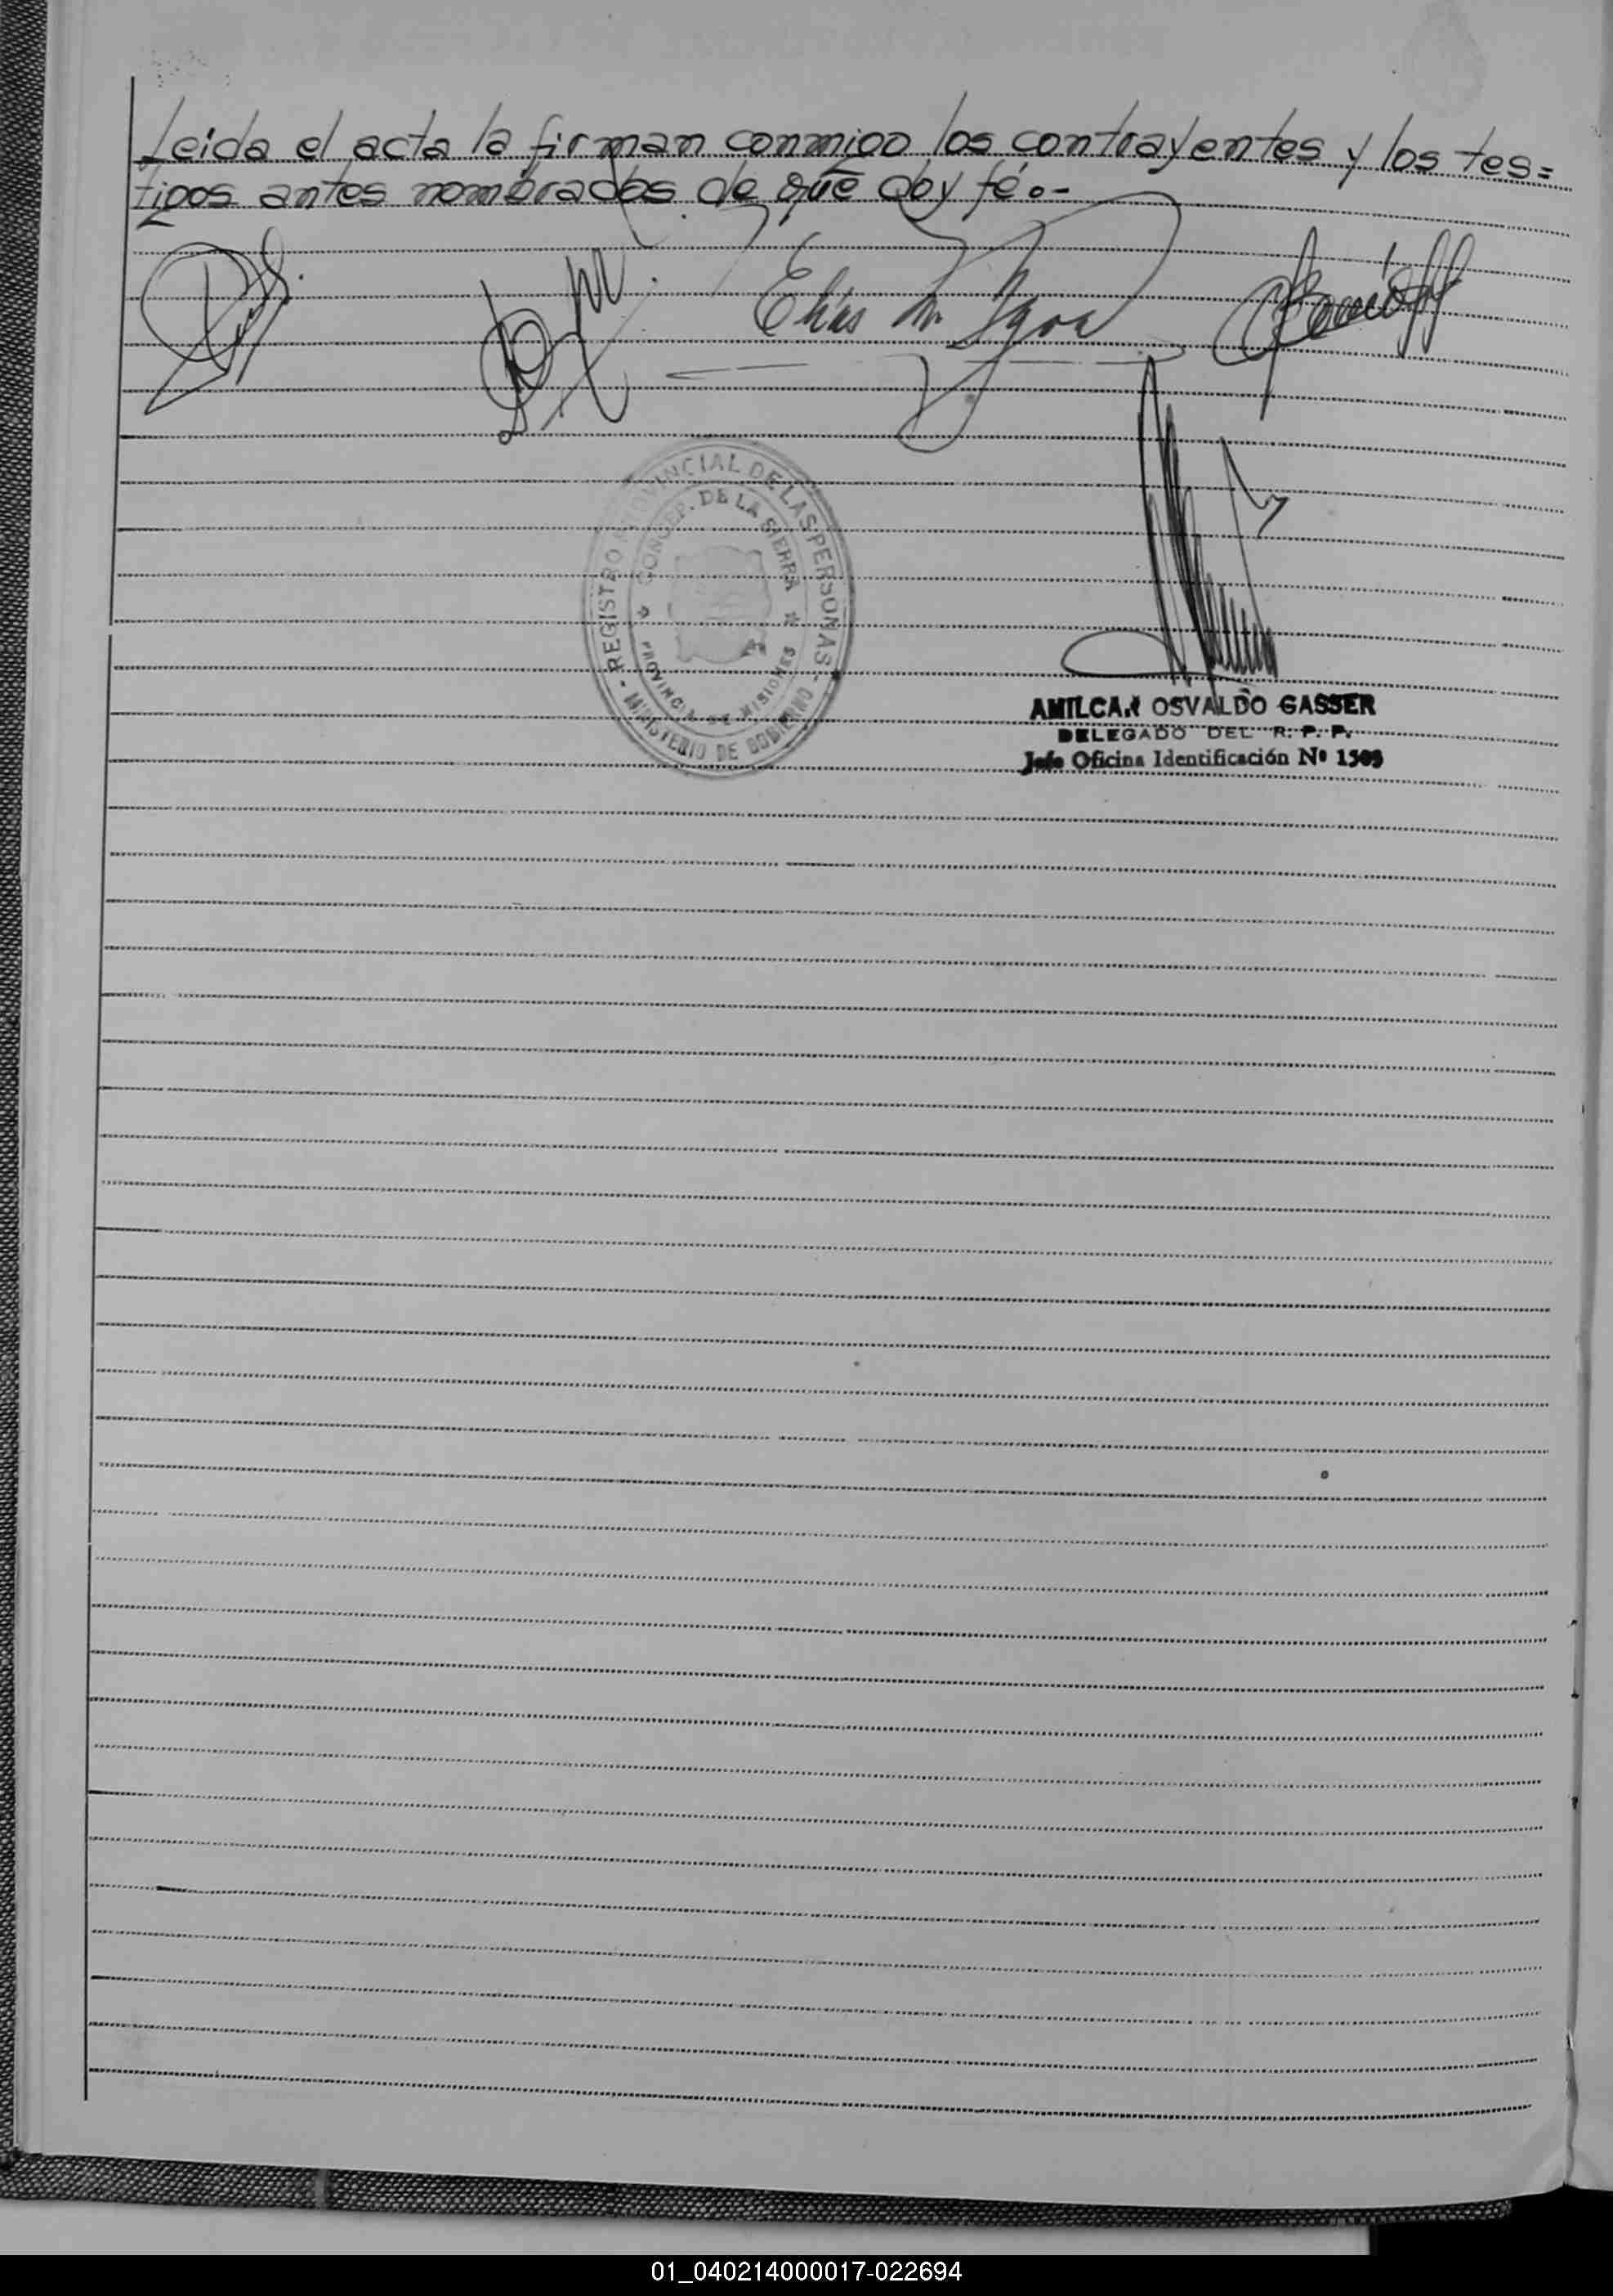 Leida el acta la firman conmigo los contrayentes y los tes=
tigos antes nombrados de que doy fé.-
Elias
- REGISTRO PROVINCIAL DE LAS PERSONAS -
MINISTERIO DE GOBIERNO
CONCEP. DE LA SIERRA
PROVINCIA DE MISIONES
AMILCAR OSVALDO GASSER
DELEGADO DEL R. P. P.
Jefe Oficina Identificación Nº 1509
01_040214000017-022694